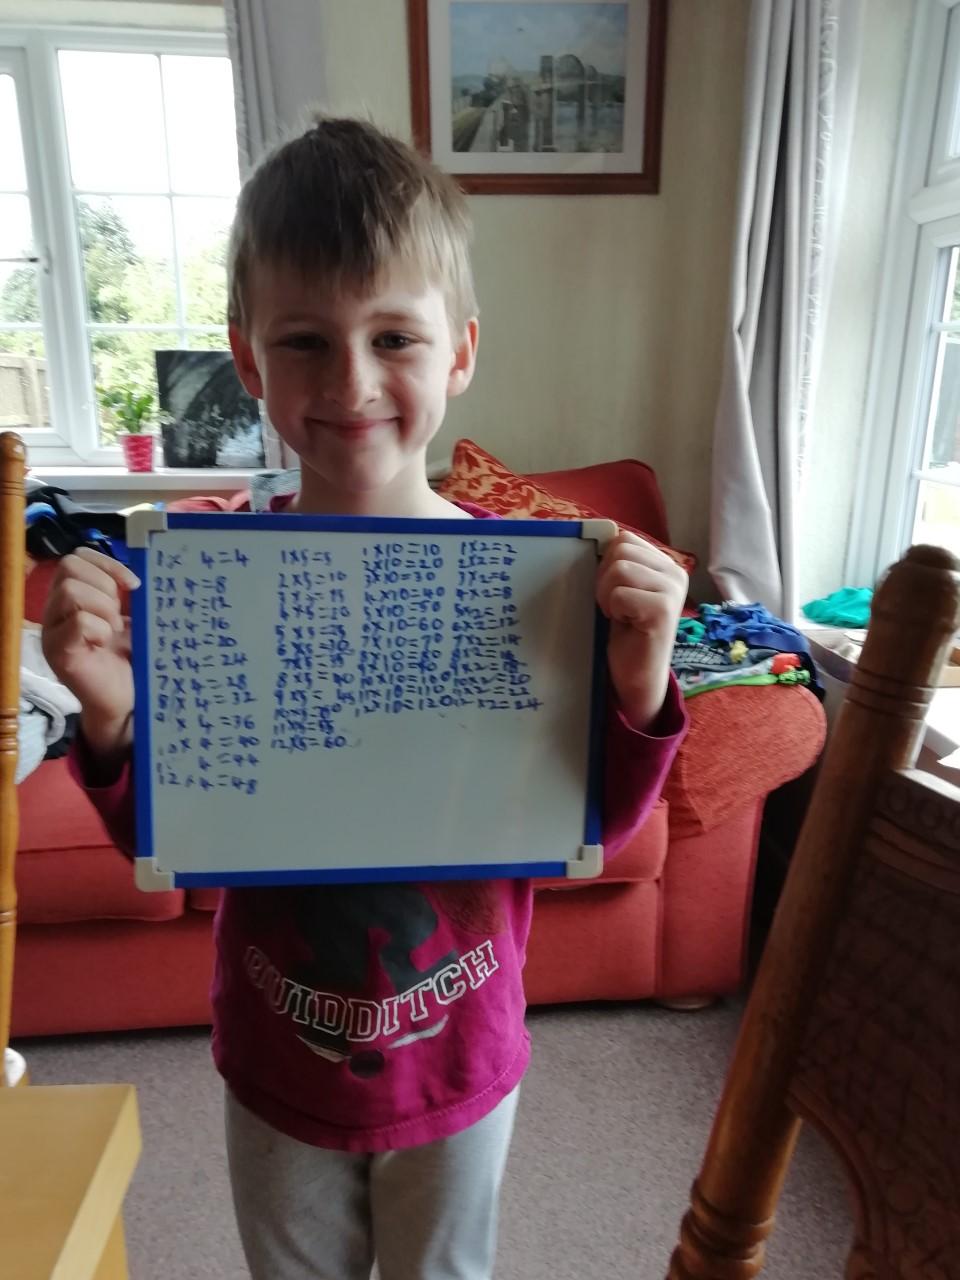 1x 4=4
2x4=8
3x4=12
4x4=16
5x4=20
6x4=24
7x4=28
8x4=32
9x4=36
10x4=40
4=44
12x4=48
1x5=5
2x5=10
3x5=15
4x5=20
5x5=25
6x5=30
7x5=35
8x5=40
9x5=45
10x5=50
11x5=55
12x5=60
1x10=10
2x10=20
3x10=30
4x10=40
5x10=50
6x10=60
7x10=70
8x10=80
9x10=90
10x10=100
11x10=110
12x10=120
1x2=2
2x2=4
3x2=6
4x2=8
5x2=10
6x2=12
7x2=14
8x2=16
9x2=18
10x2=20
11x2=22
12x2=24
QUIDDITCH